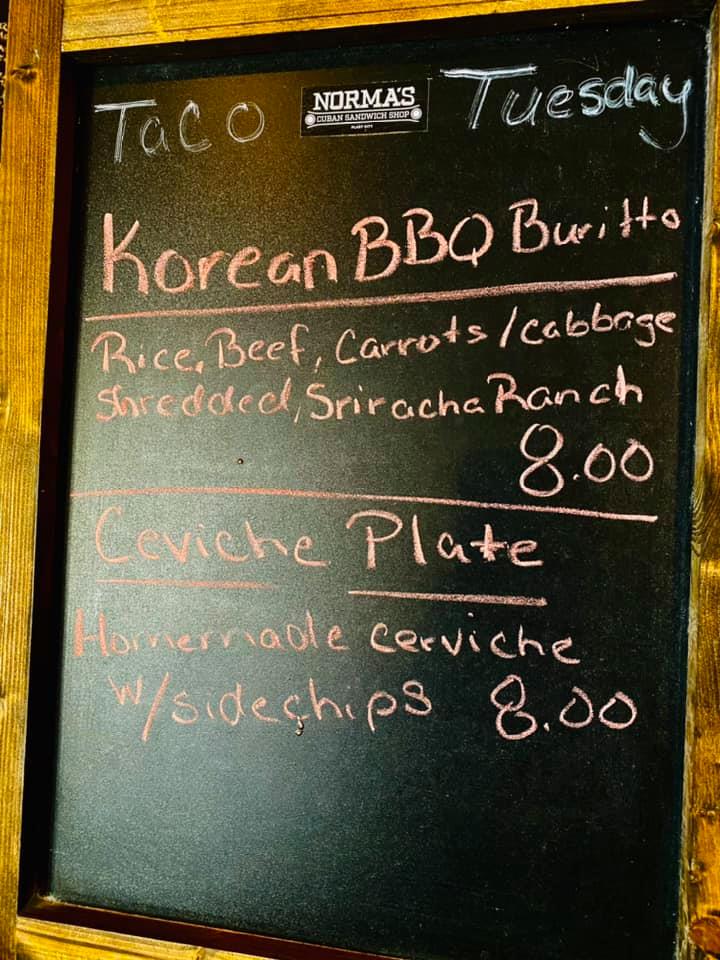 Taco Tuesday
NORMA'S
CUBAN SANDWICH SHOP
PLANT CITY
Korean BBQ Buritto
Rice, Beef, Carrots/cabbage
shredded, Sriracha Ranch
8.00
Ceviche Plate
Homemade cerviche
w/side chips 8.00